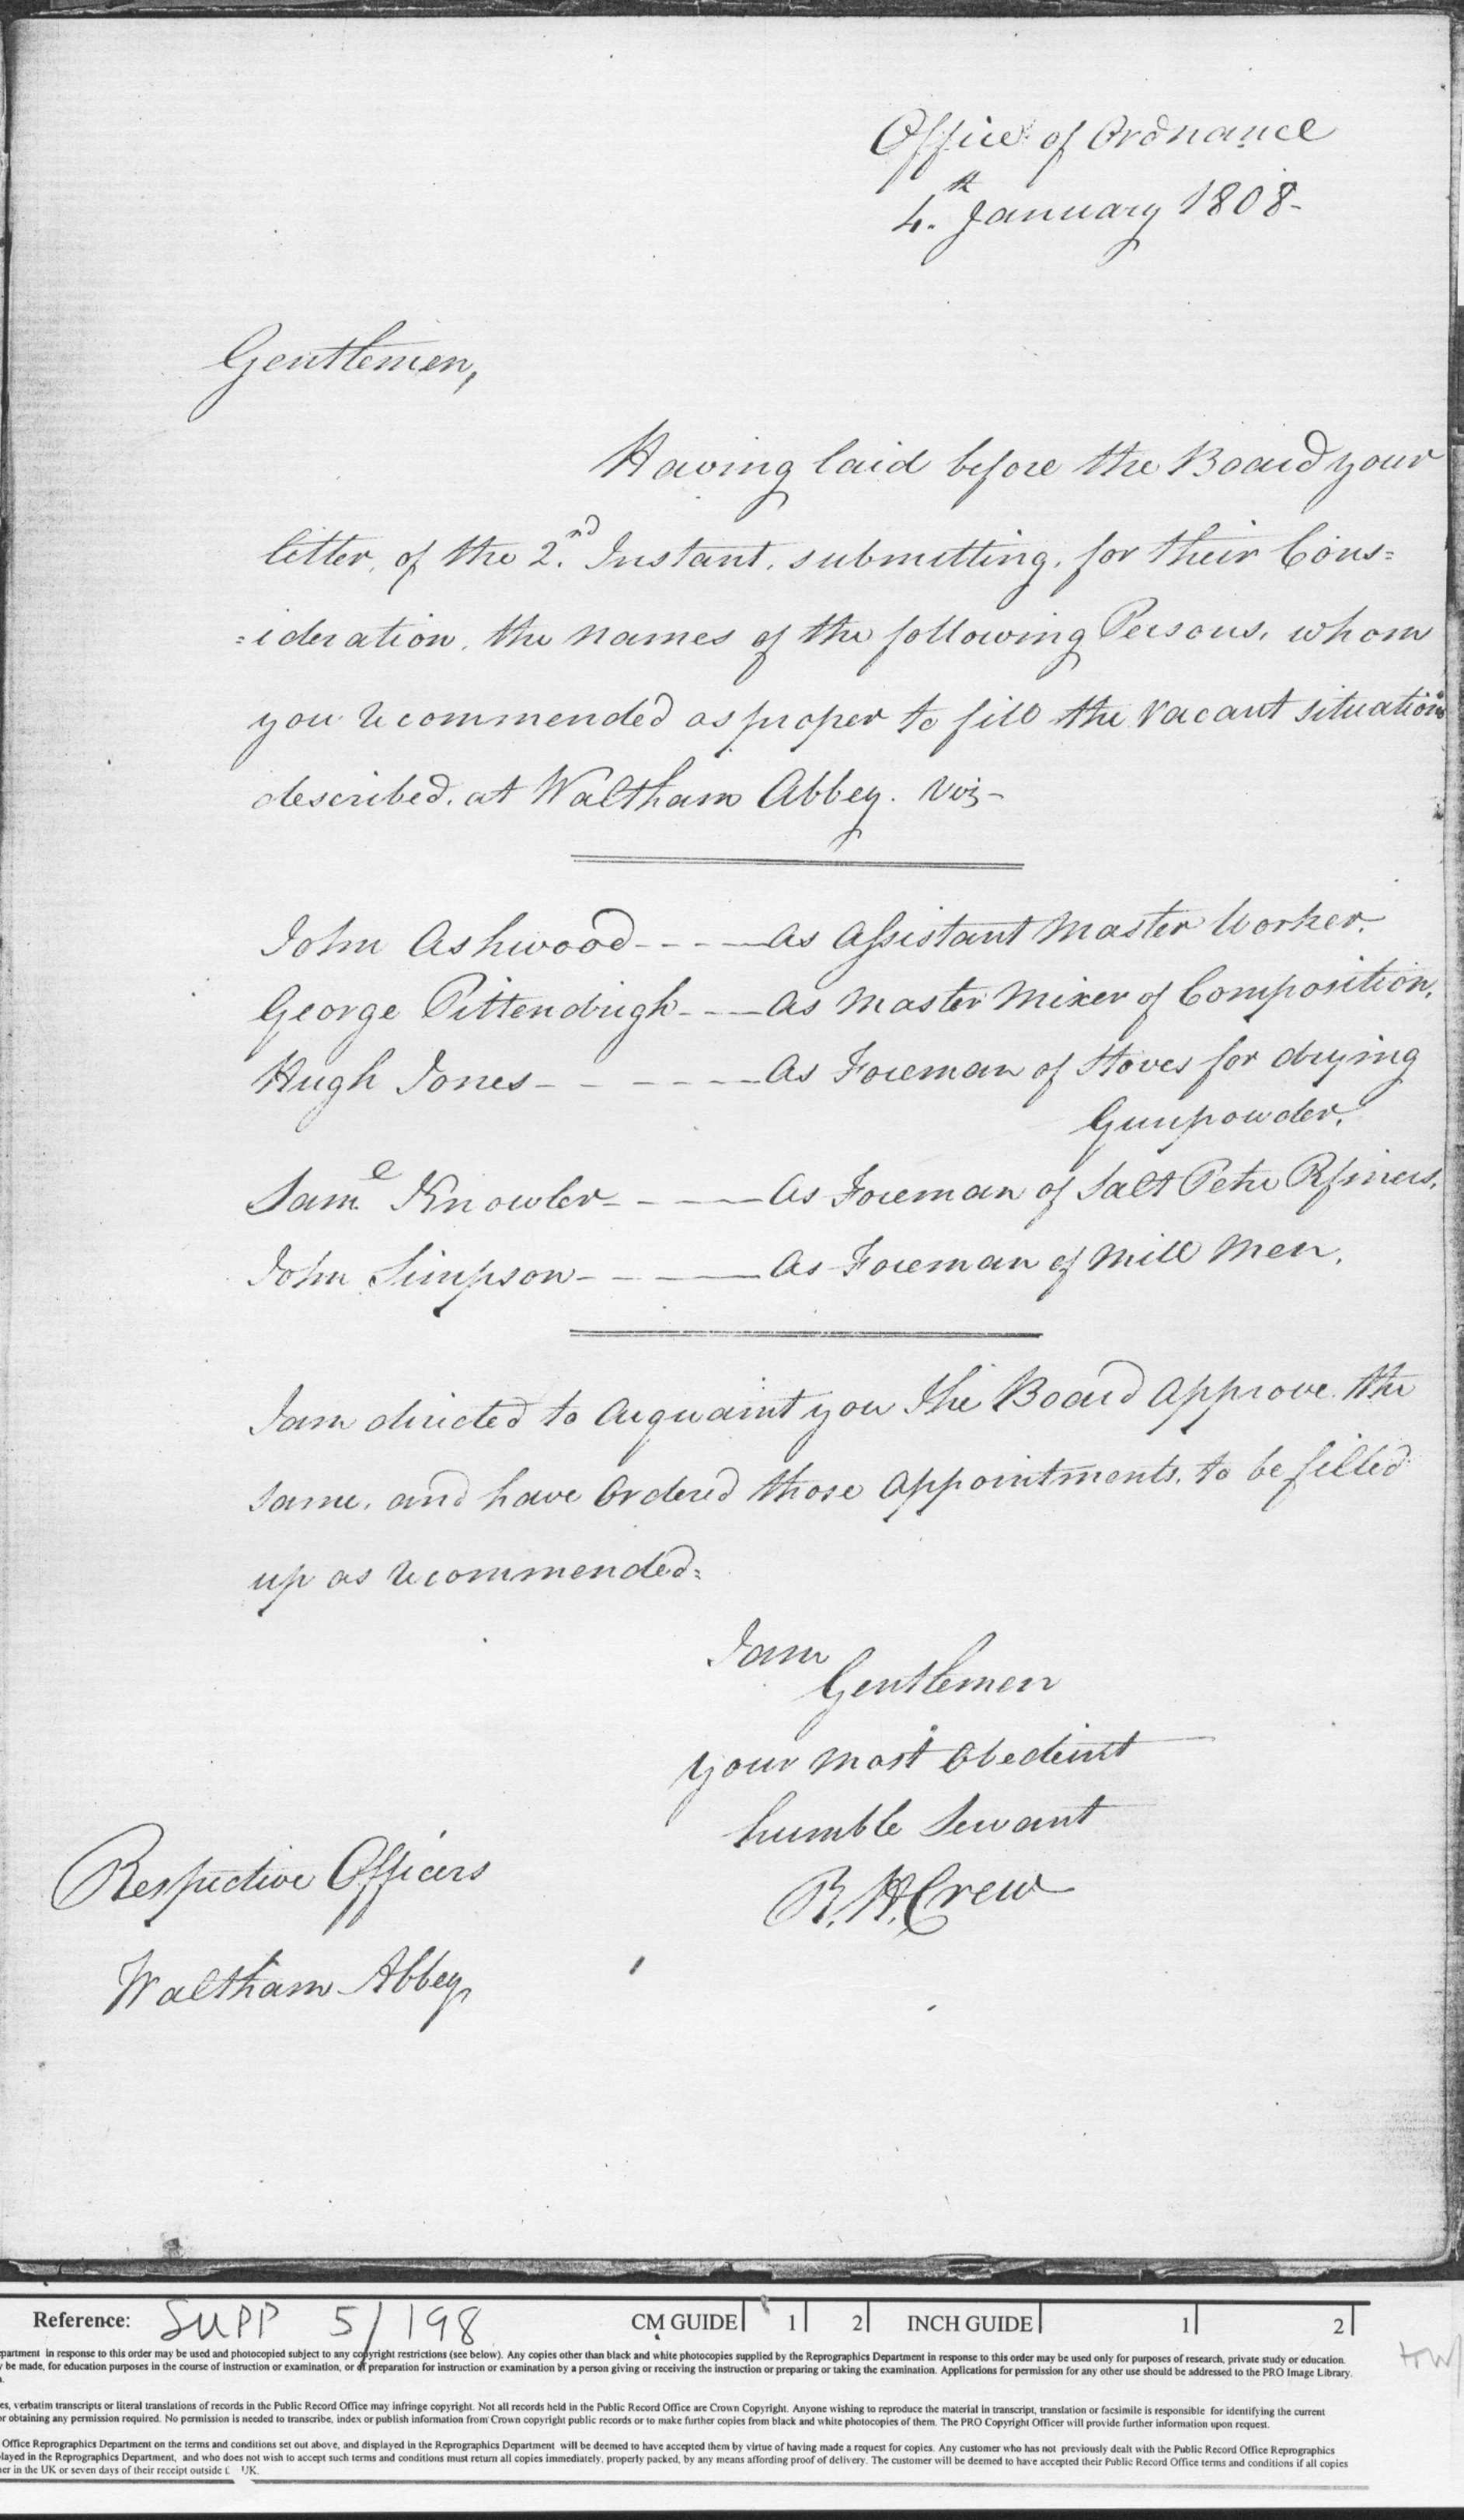 Office of Ordnance
4.th January 1808-
Gentlemen,
Having laid before the Board your
letter, of the 2.nd Instant, submitting, for their Cons=
=ideration, the names of the following Persons, whom
you recommended as proper to fill the vacant situations
described, at Waltham Abbey. Viz-
John Ashwood - - - - As Assistant Master Worker.
George Pittendrigh - - - As Master Mixer of Composition.
Hugh Jones - - - - - - As Foreman of Stoves for drying
Gunpowder.
Saml. Knowler - - - As Foreman of Salt Petre Refiners.
John Simpson - - - - As Foreman of Mill Men.
I am directed to acquaint you the Board approve the
same, and have Ordered those appointments, to be filled
up as recommended=
I am
Gentlemen
your most Obedient
humble Servant
R. H. Crew
Respective Officers
Waltham Abbey
Reference: SUPP 5/198 CM GUIDE 1 2 INCH GUIDE 1 2
partment in response to this order may be used and photocopied subject to any copyright restrictions (see below). Any copies other than black and white photocopies supplied by the Reprographics Department in response to this order may be used only for purposes of research, private study or education.
be made, for education purposes in the course of instruction or examination, or of preparation for instruction or examination by a person giving or receiving the instruction or preparing or taking the examination. Applications for permission for any other use should be addressed to the PRO Image Library.
es, verbatim transcripts or literal translations of records in the Public Record Office may infringe copyright. Not all records held in the Public Record Office are Crown Copyright. Anyone wishing to reproduce the material in transcript, translation or facsimile is responsible for identifying the current
or obtaining any permission required. No permission is needed to transcribe, index or publish information from Crown copyright public records or to make further copies from black and white photocopies of them. The PRO Copyright Officer will provide further information upon request.
Office Reprographics Department on the terms and conditions set out above, and displayed in the Reprographics Department will be deemed to have accepted them by virtue of having made a request for copies. Any customer who has not previously dealt with the Public Record Office Reprographics
layed in the Reprographics Department, and who does not wish to accept such terms and conditions must return all copies immediately, properly packed, by any means affording proof of delivery. The customer will be deemed to have accepted their Public Record Office terms and conditions if all copies
er in the UK or seven days of their receipt outside t UK.